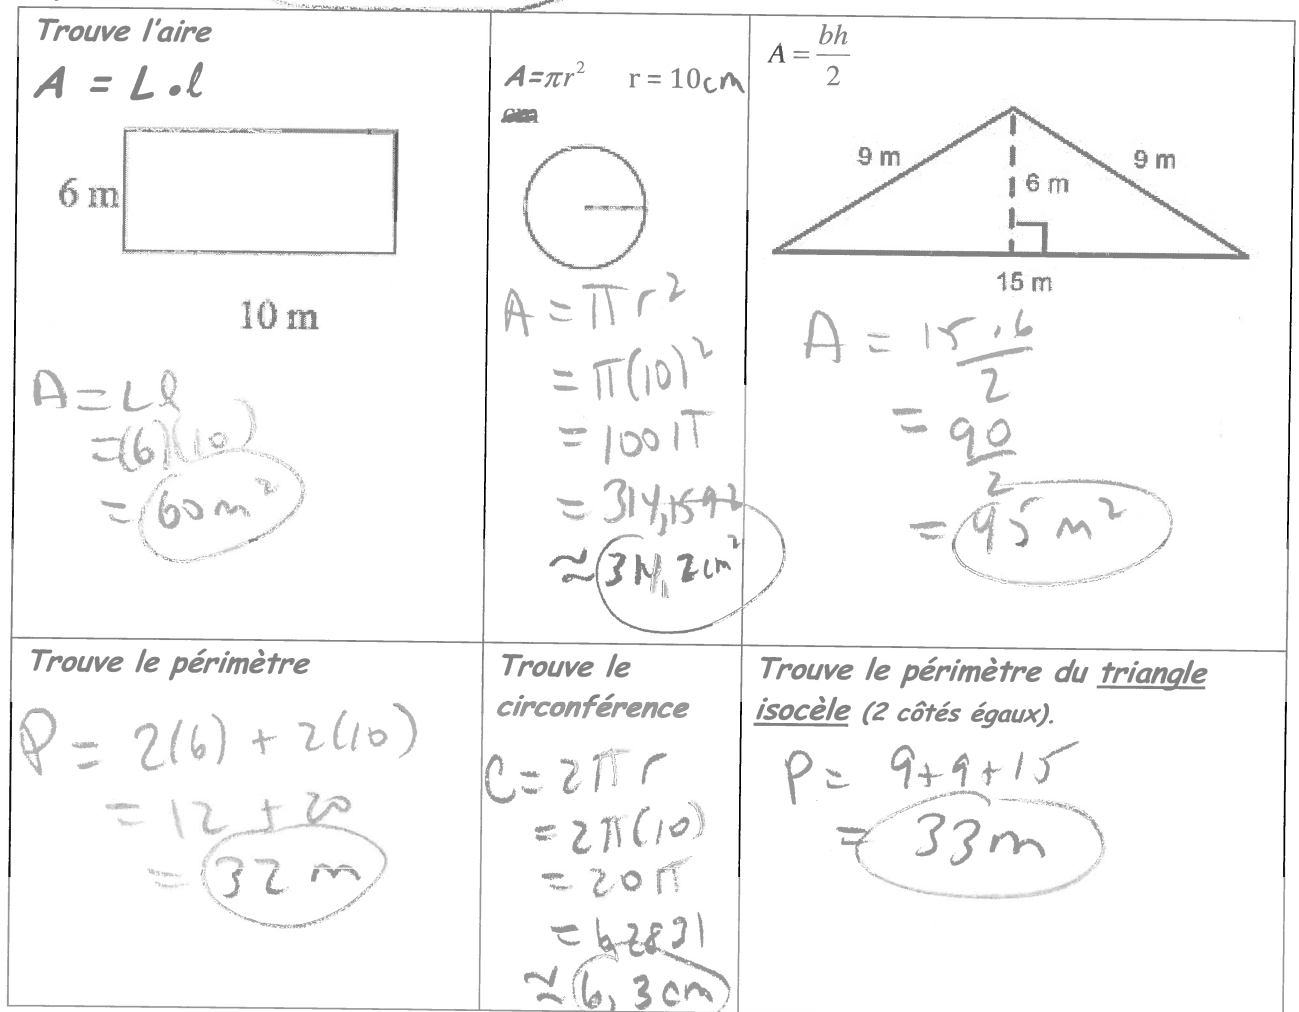 Trouve l'aire
A = L . l
6 m
10 m
A = L l
= (6)(10)
= 60 m²
A=πr² r = 10cm
A = π r²
= π(10)²
= 100 π
= 314,1592
≈ 314,2 cm²
A = bh/2
9 m
9 m
6 m
15 m
A = 15 . 6
2
= 90
2
= 45 m²
Trouve le périmètre
P = 2(6) + 2(10)
= 12 + 20
= 32 m
Trouve le
circonférence
C = 2 π r
= 2 π(10)
= 20 π
= 6,2831
≈ 6,3 cm
Trouve le périmètre du triangle
isocèle (2 côtés égaux).
P = 9+9+15
= 33 m